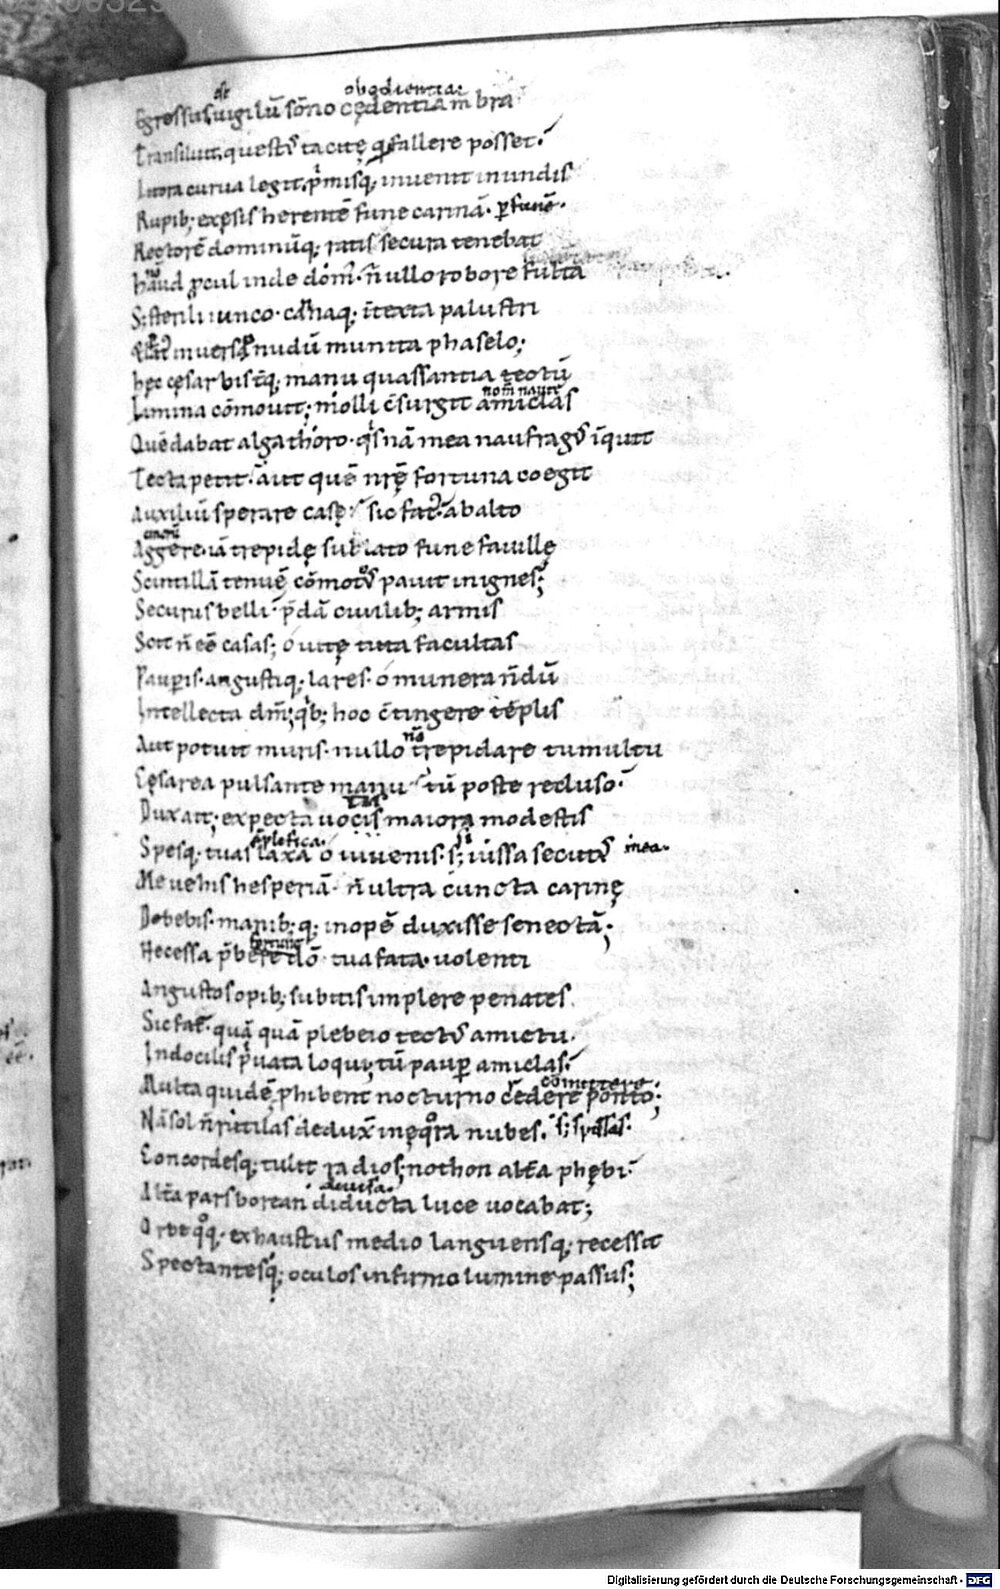 obędientia
Egressus uigilū sōno cędentia mēbra
Transiluit. questꝰ tacitę qđ fallere posset.
Litora curua legit. p̄misq; inuenit inundis
Rupib; exęsis herentē fune carinā. p funē.
Rectorē dominūq; ratis secura tenebat
haud ꝓcul inde dom̄. n̄ ullo robore fulta
S; sterili iunco. cannaq; ītexta palustri
Et latꝰ inuersꝰ nudū munita phaselo;
hęc cęsar bis t̄q; manu quassantia tectū
nom̄ nautę
Limina cōmouit; molli c̄surgit amiclas
Quē dabat alga thoro. qͥsnā mea naufragꝰ īquit
Tecta petit. aut quē nr̄ę fortuna coegit
Auxiliū sperare casę. sic fatꝰ ab alto
Aggere. iā trepidę sublato fune fauillę
Scintillā tenuē cōmotos pauit in ignes;
Securus belli. p̄dā ciuilib; armis
Scit n̄ eē casas; o uitę tuta facultas
Pauꝑis. angustiq; lares. o munera n̄dū
Intellecta dm̄; qͥb; hoc c̄tingere tēplis
Aut potuit muris. nullo trepidare tumultu
Cęsarea pulsante manu. tū poste recluso.
Dux ait; expecta uotis maiora modestis
Spesq; tuas laxa o iuuenis. si iussa secutꝰ mea.
Me uehis hesperiā. n̄ ultra cuncta carinę
Debebis. manib; q; inopē duxisse senectā;
Necessa p̄bere dō. tua fata. uolenti
Angustos opib; subitis implere penates.
Sic fatꝰ. quāquā plebeio tectꝰ amictu.
Indocilis p̄uata loqui; tū pauꝑ amiclas.
cōmittere.
Multa quidē ꝓhibent nocturno credere ponto;
Nā sol n̄ rutilas deduxͭ inęqͦra nubes. s; spissas.
Concordesq; tulit radios; nothon altͣa phębi
diuisa.
Altͣa pars borean diducta luce uocabat;
Orbe qͦq; exhaustus medio languensq; recessit
Spectantesq; oculos infirmo lumine passus;
Digitalisierung gefördert durch die Deutsche Forschungsgemeinschaft - DFG